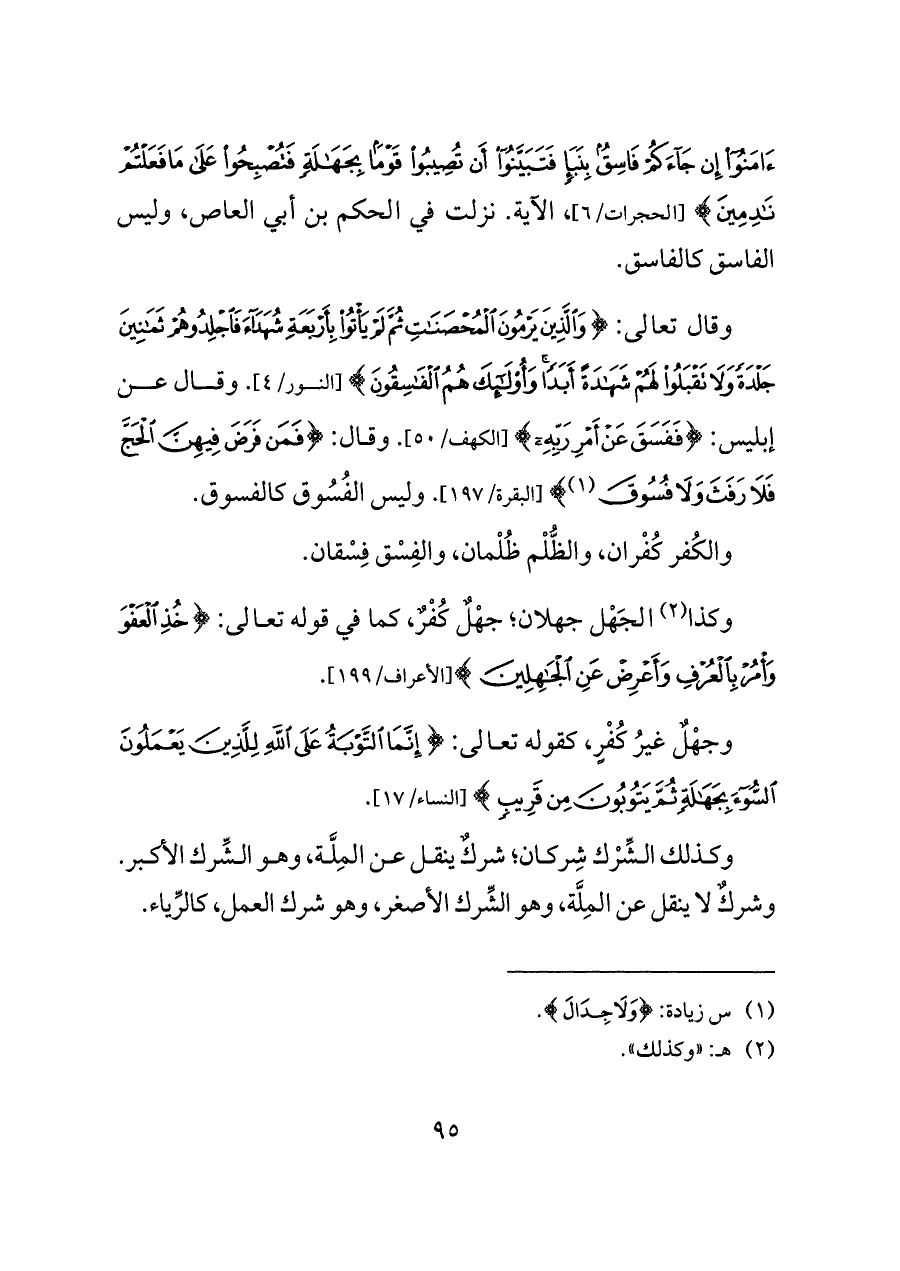 ءَامَنُوٓا۟ إِن جَآءَكُمْ فَاسِقٌۢ بِنَبَإٍ فَتَبَيَّنُوٓا۟ أَن تُصِيبُوا۟ قَوْمًۢا بِجَهَٰلَةٍ فَتُصْبِحُوا۟ عَلَىٰ مَا فَعَلْتُمْ
نَٰدِمِينَ ﴾ [الحجرات/ ٦]، الآية. نزلت في الحكم بن أبي العاص، وليس
الفاسق كالفاسق.
وقال تعالى: ﴿ وَٱلَّذِينَ يَرْمُونَ ٱلْمُحْصَنَٰتِ ثُمَّ لَمْ يَأْتُوا۟ بِأَرْبَعَةِ شُهَدَآءَ فَٱجْلِدُوهُمْ ثَمَٰنِينَ
جَلْدَةً وَلَا تَقْبَلُوا۟ لَهُمْ شَهَٰدَةً أَبَدًا ۚ وَأُو۟لَٰٓئِكَ هُمُ ٱلْفَٰسِقُونَ ﴾ [النور/ ٤]. وقال عن
إبليس: ﴿ فَفَسَقَ عَنْ أَمْرِ رَبِّهِۦٓ ﴾ [الكهف/ ٥٠]. وقال: ﴿ فَمَن فَرَضَ فِيهِنَّ ٱلْحَجَّ
فَلَا رَفَثَ وَلَا فُسُوقَ (١)﴾ [البقرة/ ١٩٧]. وليس الفُسُوق كالفسوق.
والكُفر كُفْران، والظُّلْم ظُلْمان، والفِسْق فِسْقان.
وكذا(٢) الجَهْل جهلان؛ جهْلٌ كُفْرٌ، كما في قوله تعالى: ﴿ خُذِ ٱلْعَفْوَ
وَأْمُرْ بِٱلْعُرْفِ وَأَعْرِضْ عَنِ ٱلْجَٰهِلِينَ ﴾ [الأعراف/ ١٩٩].
وجهْلٌ غيرُ كُفْرٍ، كقوله تعالى: ﴿ إِنَّمَا ٱلتَّوْبَةُ عَلَى ٱللَّهِ لِلَّذِينَ يَعْمَلُونَ
ٱلسُّوٓءَ بِجَهَٰلَةٍ ثُمَّ يَتُوبُونَ مِن قَرِيبٍ ﴾ [النساء/ ١٧].
وكذلك الشِّرْك شِركان؛ شركٌ ينقل عن المِلَّة، وهو الشِّرك الأكبر.
وشركٌ لا ينقل عن المِلَّة، وهو الشِّرك الأصغر، وهو شرك العمل، كالرِّياء.
(١) س زيادة: ﴿وَلَا جِدَالَ ﴾.
(٢) هـ: «وكذلك».
٩٥